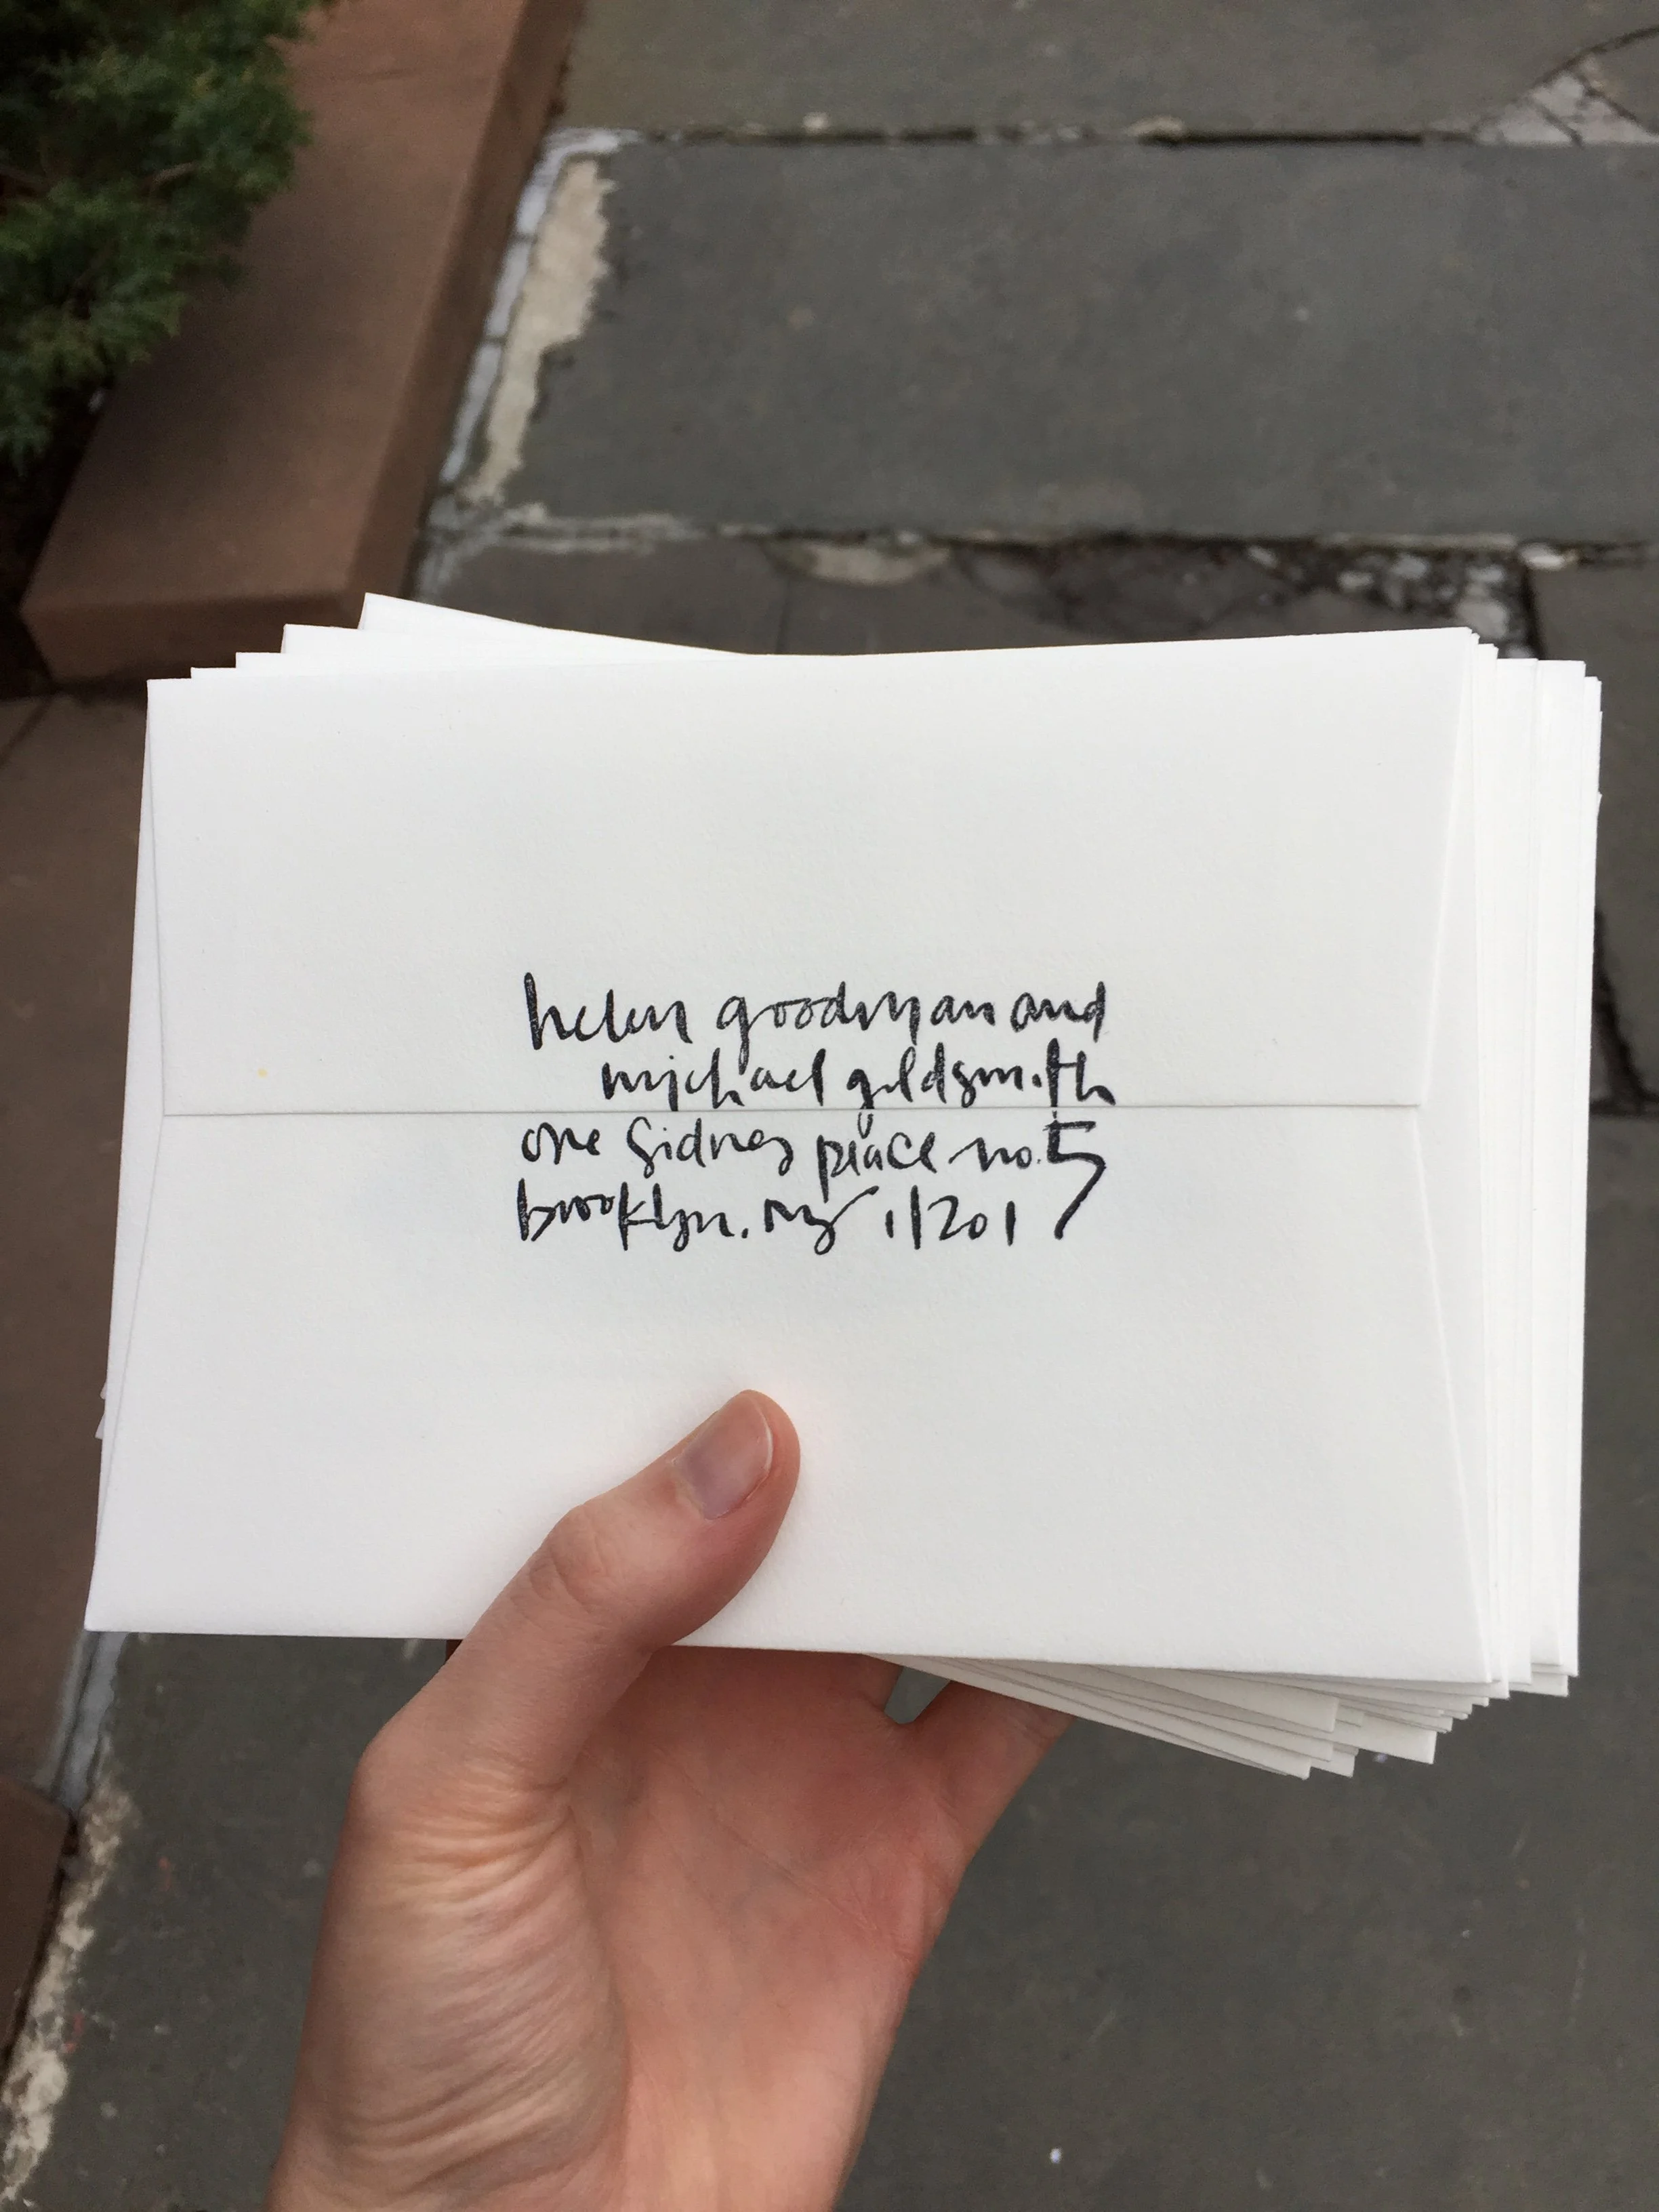 helen goodman and
michael goldsmith
one sidney place no. 5
brooklyn. ny 11201